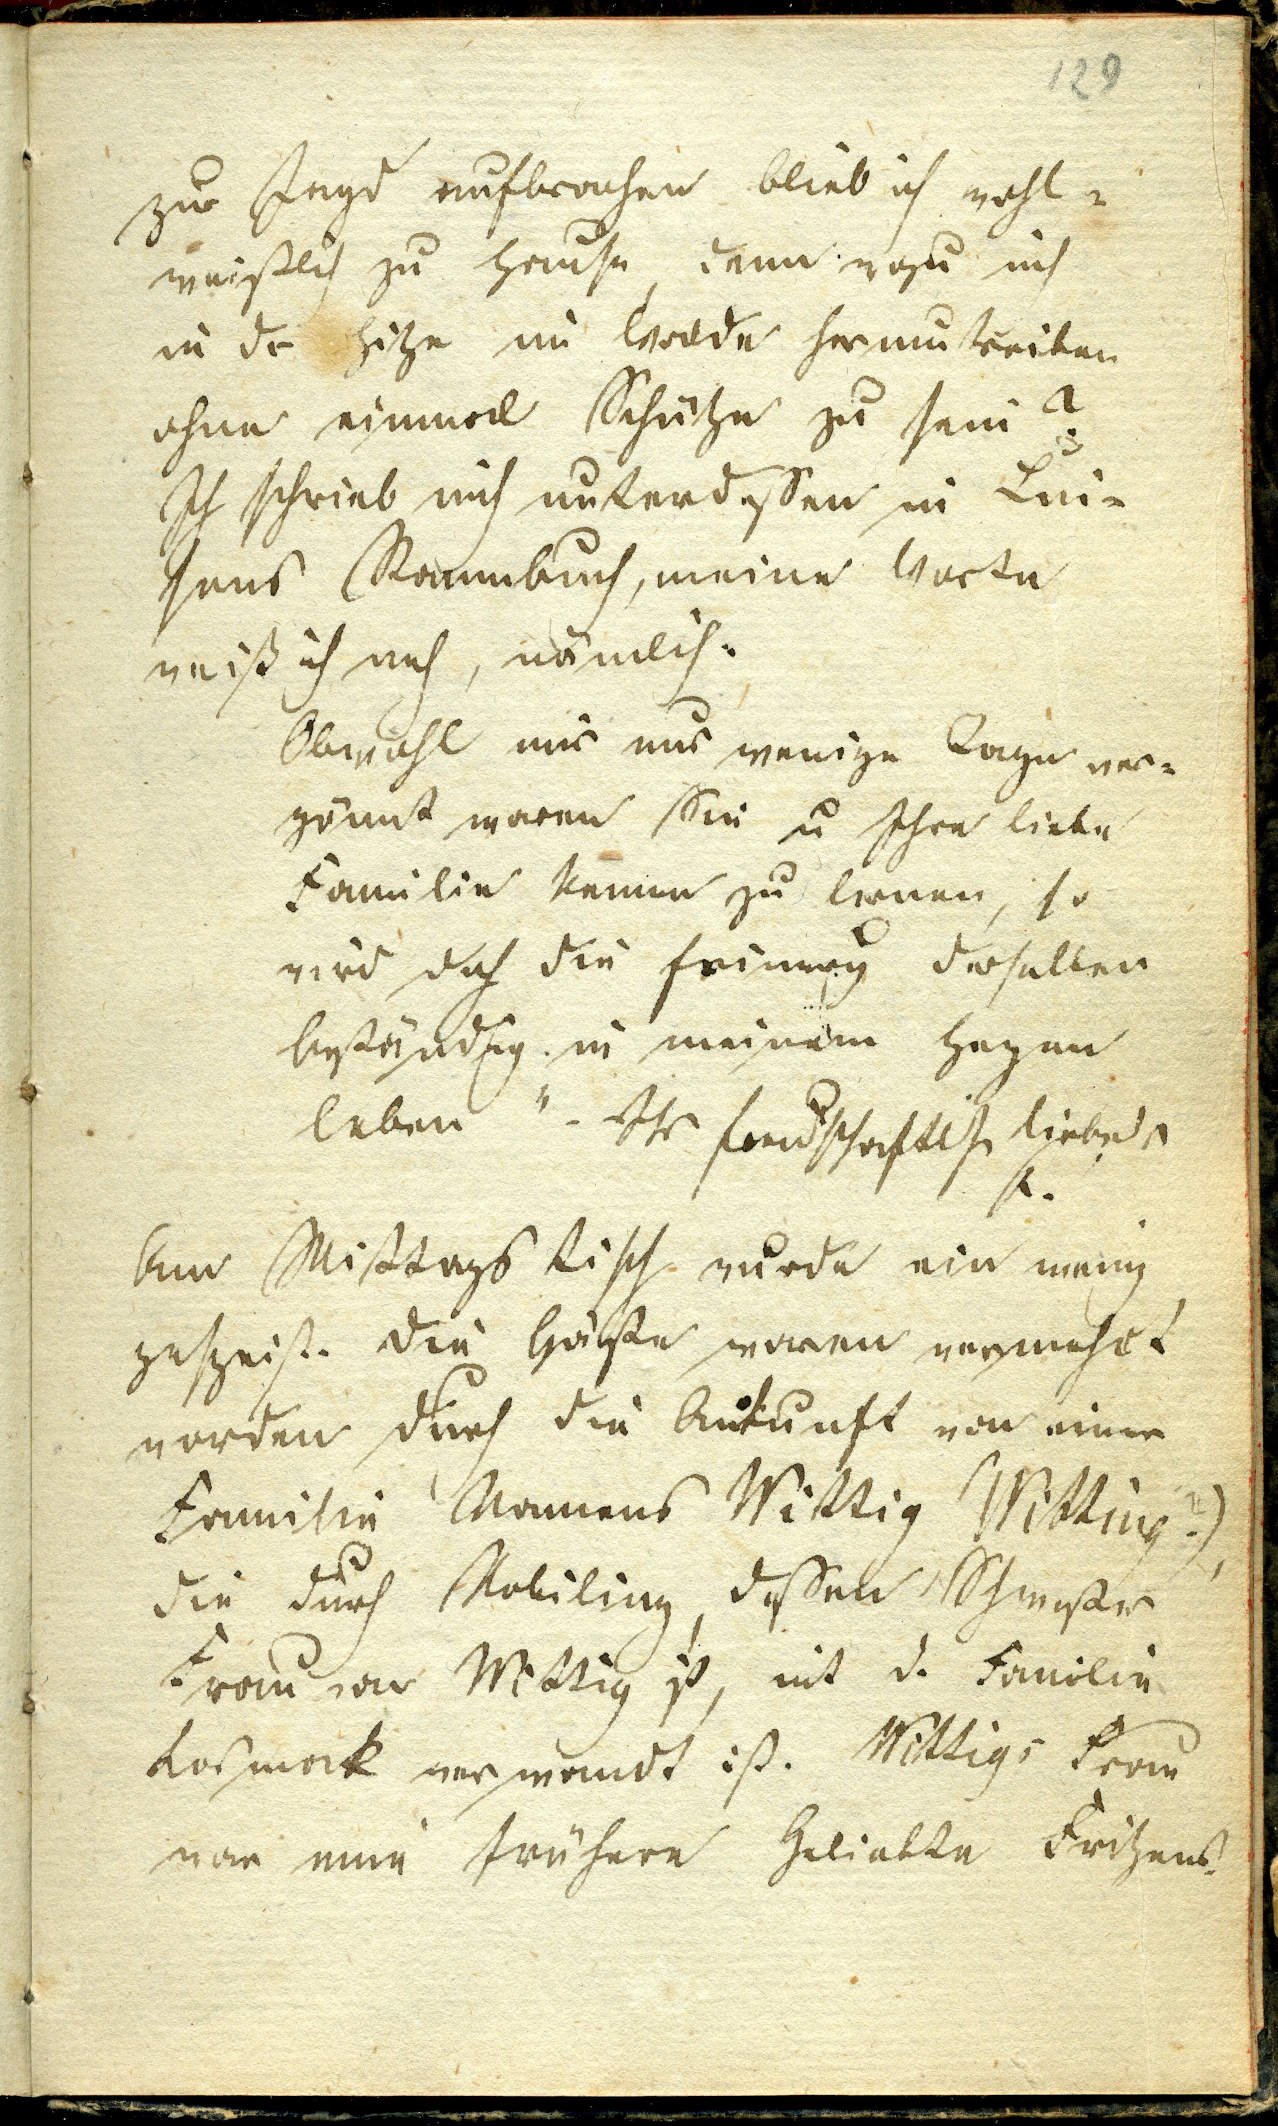 129
zur Jagd aufbrachen blieb ich wohl-
weißlich zu Hause, denn wozu mich
in der Hitze im Walde herumtreiben
ohne einmal Schütze zu sein?
Ich schrieb mich unterdessen in Lui-
sens Stammbuch, meine Worte
weiß ich noch, nämlich:
Obwohl mir nur wenige Tage ver-
gönnt waren Sie u Ihre liebe
Familie kennen zu lernen, so
wird doch die Erinnrung derselben
beständig in meinem Herzen
leben" - Ihr freundschaftlich liebender
A.
Am Mittags tisch wurde ein wenig
gespeist. Die Gäste waren vermehrt
worden durch die Ankunft von einer
Familie Namens Wittig (Witting?),
die durch Nobiling, dessen Schwester
Frau von Wittig ist, mit d. Familie
Kosmack verwandt ist. Wittigs Frau
war eine frühere Geliebte Fritzens.